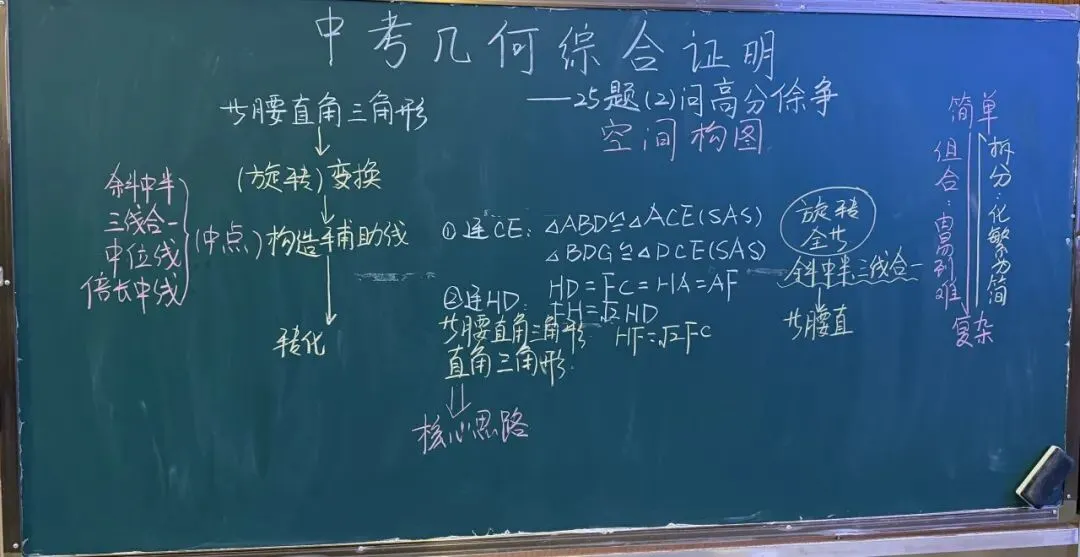 中考几何综合证明
——25题(2)问高分你争
空间构图
廾腰直角三角形
(旋转)变换
斜中半
三线合一
中位线
倍长中线
(中点)构造辅助线
转化
①连CE: △ABD≌△ACE(SAS)
△BDG≌△DCE(SAS)
②连HD:
HD=FC=HA=AF
FH=√2HD
廾腰直角三角形 HF=√2FC
直角三角形
核心思路
旋转
全廾
斜中半三线合一
廾腰直
简单
组合:由易到难
拆分:化繁为简
复杂